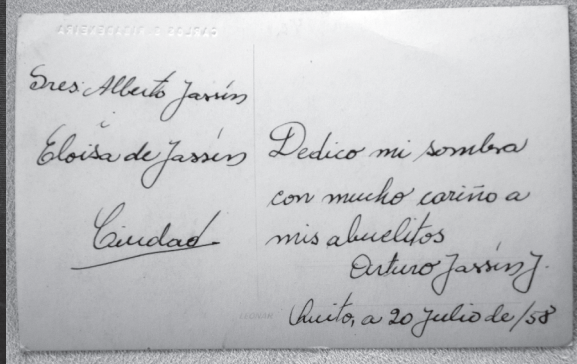 Sres. Alberto Jassín
i
Eloisa de Jassín
Ciudad
Dedico mi sombra
con mucho cariño a
mis abuelitos
Arturo Jassín J.
Quito, a 20 Julio de /58